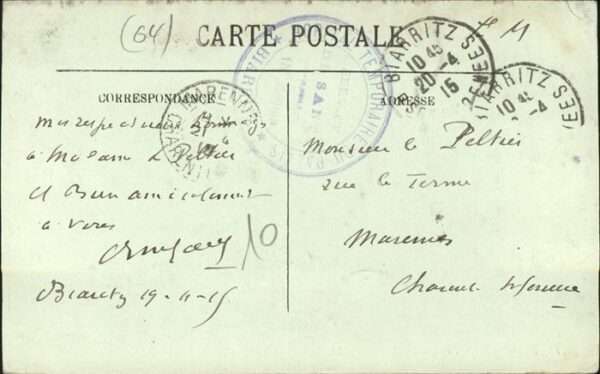 (64)
F M
CARTE POSTALE
BIARRITZ
10 45
20 -4
15
BIARRITZ
10 45
TEMPORAIRE
MARENNES
CORRESPONDANCE
ADRESSE
Mes respectueux
à Madame Le Peltier
et Bien amicalement
à vous
10
Biarritz 19-4-15
Monsieur Le Peltier
rue le Terme
Marennes
Charente Inférieure